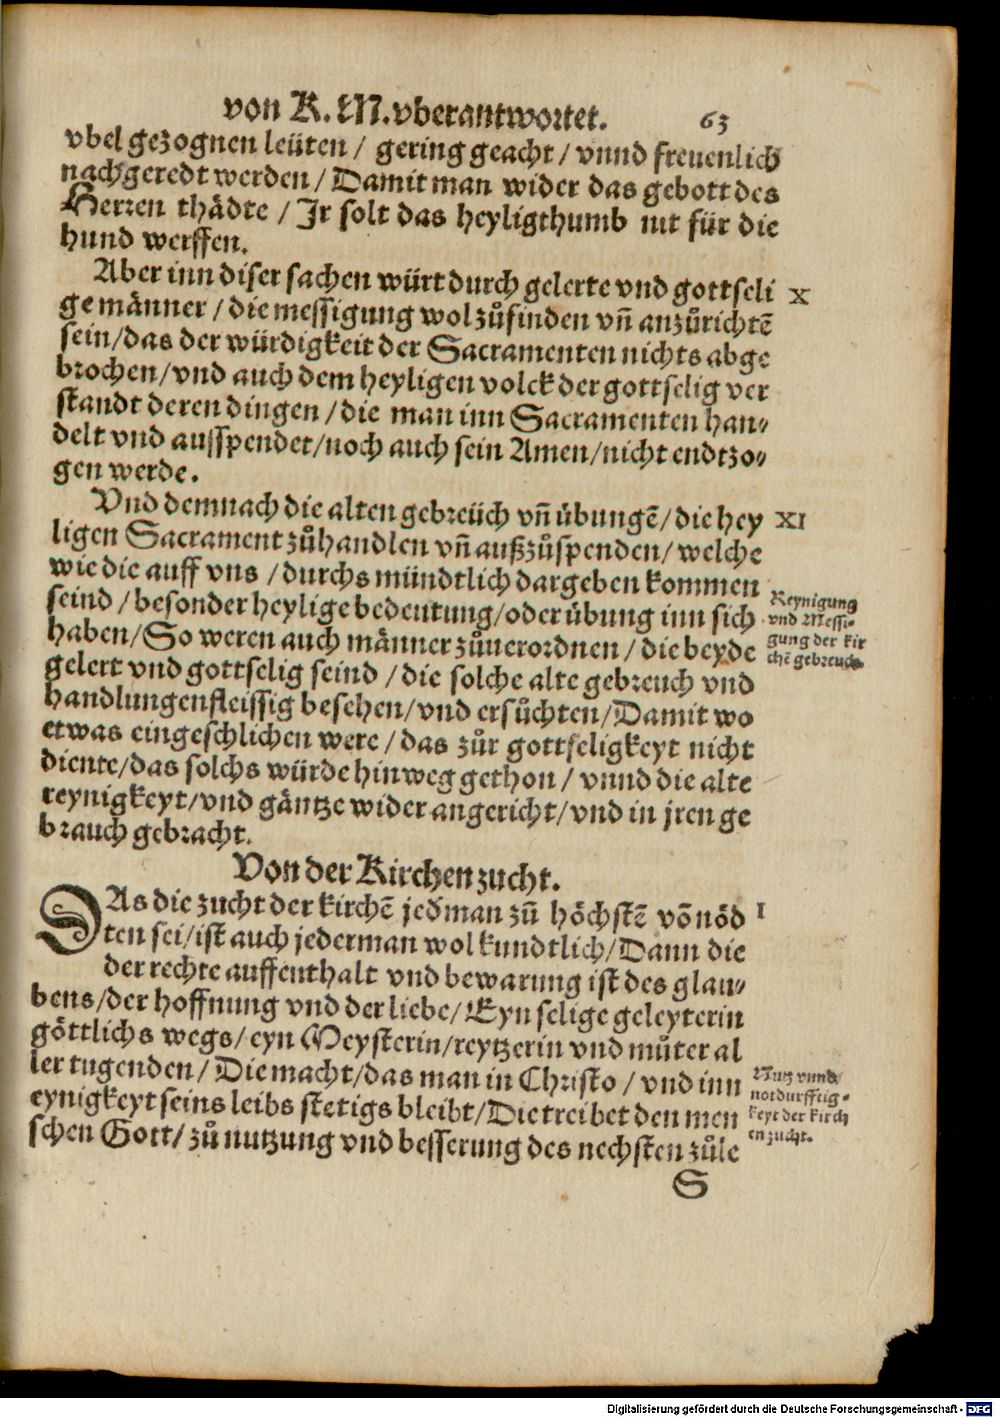 von K. M. vberantwortet. 63
vbel gezognen leüten / gering geacht / vnnd freuenlich
nachgeredt werden / Damit man wider das gebott des
Herren thädte / Jr solt das heyligthumb nit für die
hund werffen.
Aber inn diser sachen würt durch gelerte vnd gottseli X
ge männer / die messigung wol zůfinden vñ anzůrichtẽ
sein / das der würdigkeit der Sacramenten nichts abge
brochen / vnd auch dem heyligen volck der gottselig ver
standt deren dingen / die man inn Sacramenten han⸗
delt vnd ausspendet / noch auch sein Amen / nicht endtzo⸗
gen werde.
Vnd demnach die alten gebreüch vñ übungẽ / die hey XI
ligen Sacrament zůhandlen vñ außzůspenden / welche
wie die auff vns / durchs mündtlich dargeben kommen
seind / besonder heylige bedeutung / oder übung inn sich
haben / So weren auch männer zůuerordnen / die beyde
gelert vnd gottselig seind / die solche alte gebreuch vnd
handlungen fleissig besehen / vnd ersůchten / Damit wo
etwas eingeschlichen were / das zůr gottseligkeyt nicht
diente / das solchs würde hinweg gethon / vnnd die alte
reynigkeyt / vnd gäntze wider angericht / vnd in jren ge
brauch gebracht.
Reynigung
vnd Messi⸗
gung der kir
chẽ gebreuch.
Von der Kirchen zucht.
DAs die zucht der kirchẽ jeđman zů höchstẽ võ nöd I
ten sei / ist auch jederman wol kundtlich / Dann die
der rechte auffenthalt vnd bewarung ist des glau⸗
bens / der hoffnung vnd der liebe / Eyn selige geleyterin
göttlichs wegs / eyn Meysterin / reytzerin vnd můter al
ler tugenden / Die macht / das man in Christo / vnd inn
eynigkeyt seins leibs stetigs bleibt / Die treibet den men
schen Gott / zů nutzung vnd besserung des nechsten zůle
Nutz vnnd
notdurfftig⸗
keyt der kirch
en zucht.
S
Digitalisierung gefördert durch die Deutsche Forschungsgemeinschaft - DFG